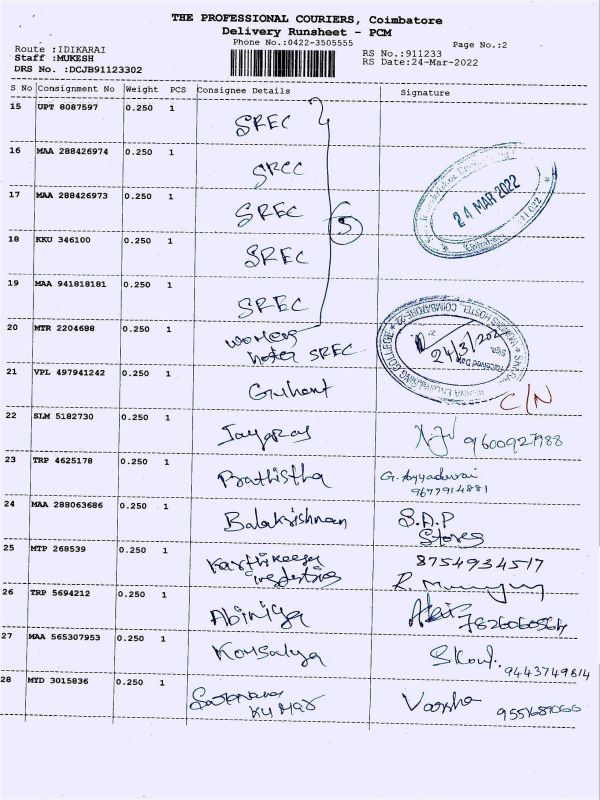 THE PROFESSIONAL COURIERS, Coimbatore
Delivery Runsheet - PCM
Phone No.:0422-3505555
Page No.:2
Route :IDIKARAI
Staff :MUKESH
DRS No. :DCJB91123302
RS No.:911233
RS Date:24-Mar-2022
S No Consignment No Weight PCS Consignee Details Signature
15 UPT 8087597 0.250 1 SREC
16 MAA 288426974 0.250 1 SREC
17 MAA 288426973 0.250 1 SREC
5
24 MAR 2022
18 KKU 346100 0.250 1 SREC
19 MAA 941818181 0.250 1 SREC
20 MTR 2204688 0.250 1 womens
hotel SREC
24/3/202
21 VPL 497941242 0.250 1 Guhant C/N
22 SLM 5182730 0.250 1 Jayaraj 9600927988
23 TRP 4625178 0.250 1 Prathistha G. Ayyadurai
9677914881
24 MAA 288063686 0.250 1 Balakrishnan S.A.P
Stores
25 MTP 268539 0.250 1 Karthikeeya 8754934517
industries
26 TRP 5694212 0.250 1 Abiniya 7826060564
27 MAA 565307953 0.250 1 Kousalya 9443749814
28 MYD 3015836 0.250 1 KUMAR Varsha